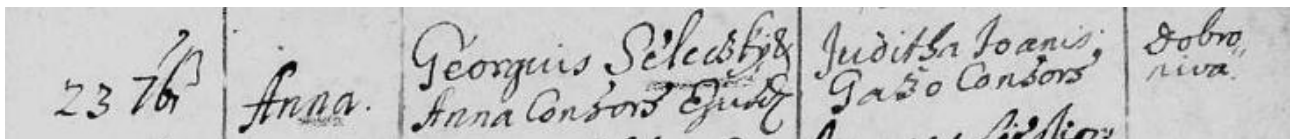 23 7br
Anna.
Georguis Selecsky &
Anna Consors Ejusd
Juditha Ioanis
Gaso Consors
Dobro„
niva.